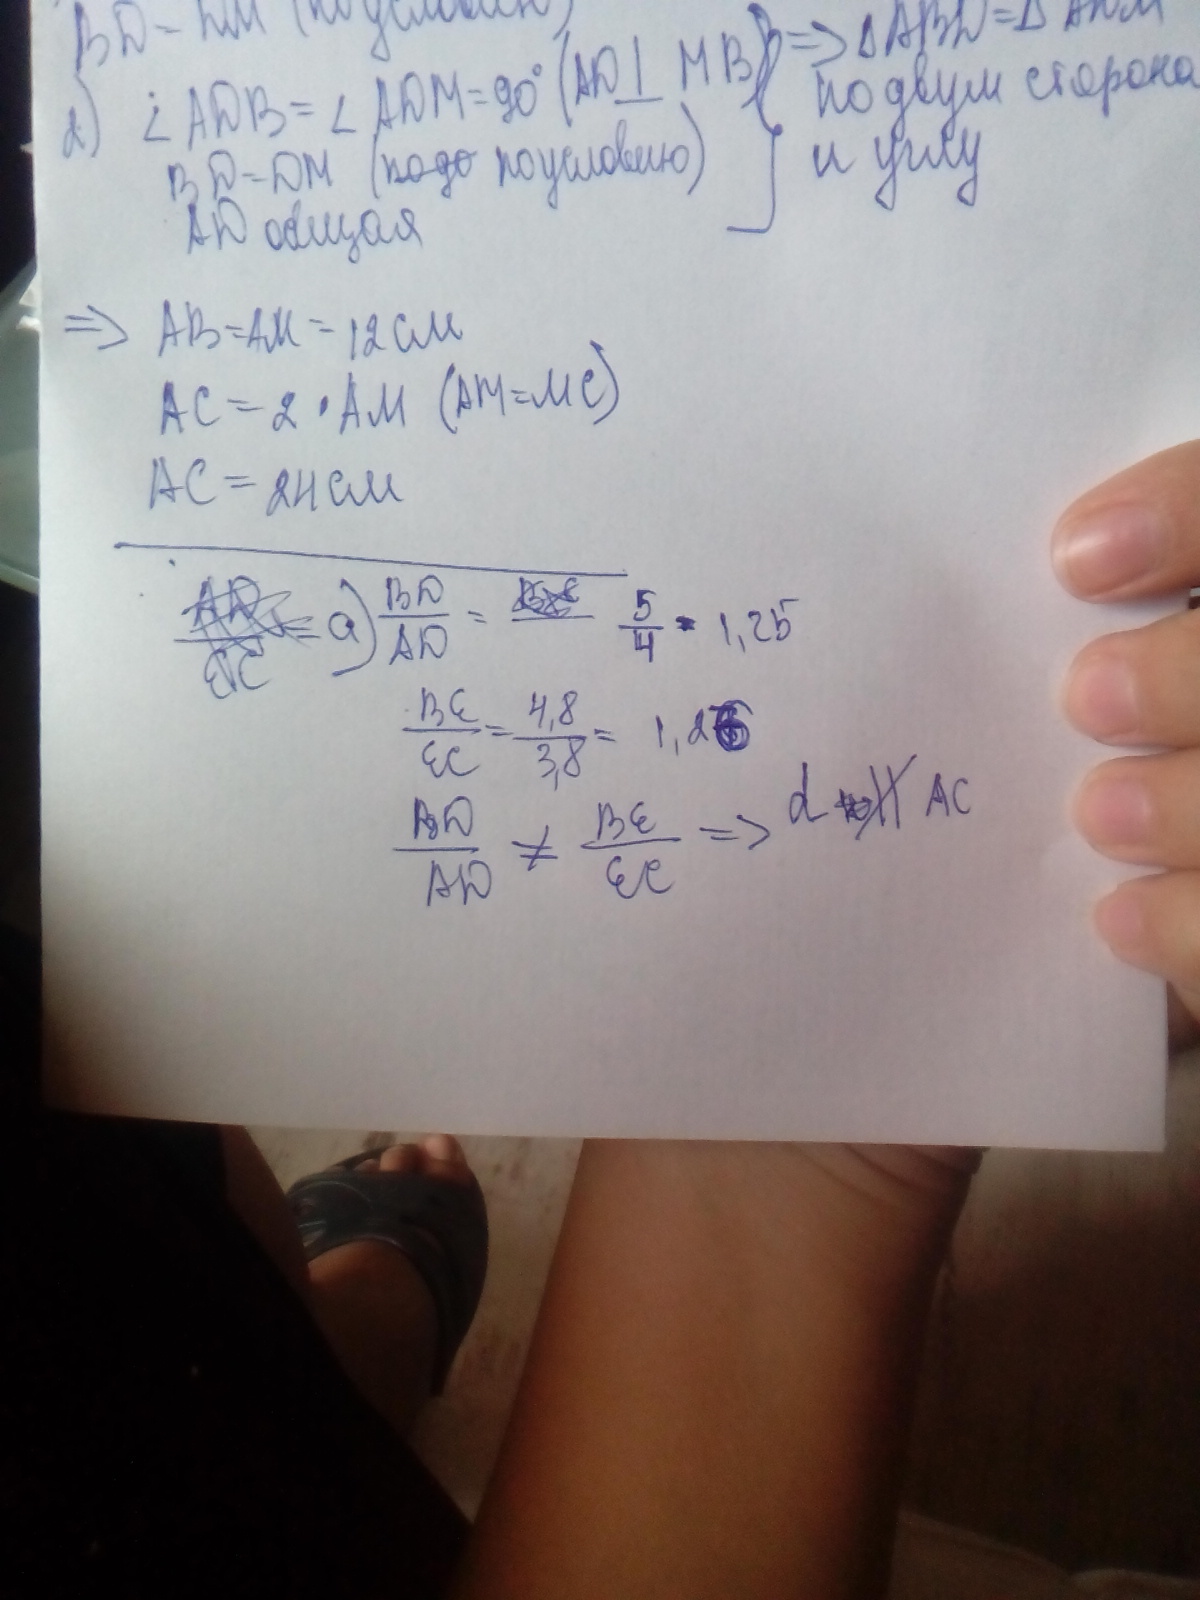 BD = DM (по условию)
2) ∠ADB = ∠ADM = 90° (AD ⊥ MB) => ΔABD = ΔADM
BD = DM (по условию) по двум сторона
AD общая и углу
=> AB = AM = 12 см
AC = 2 · AM (AM = MC)
AC = 24 см
a) BD/AD = 5/4 = 1,25
BE/EC = 4,8/3,8 = 1,26
BD/AD ≠ BE/EC => d ∦ AC